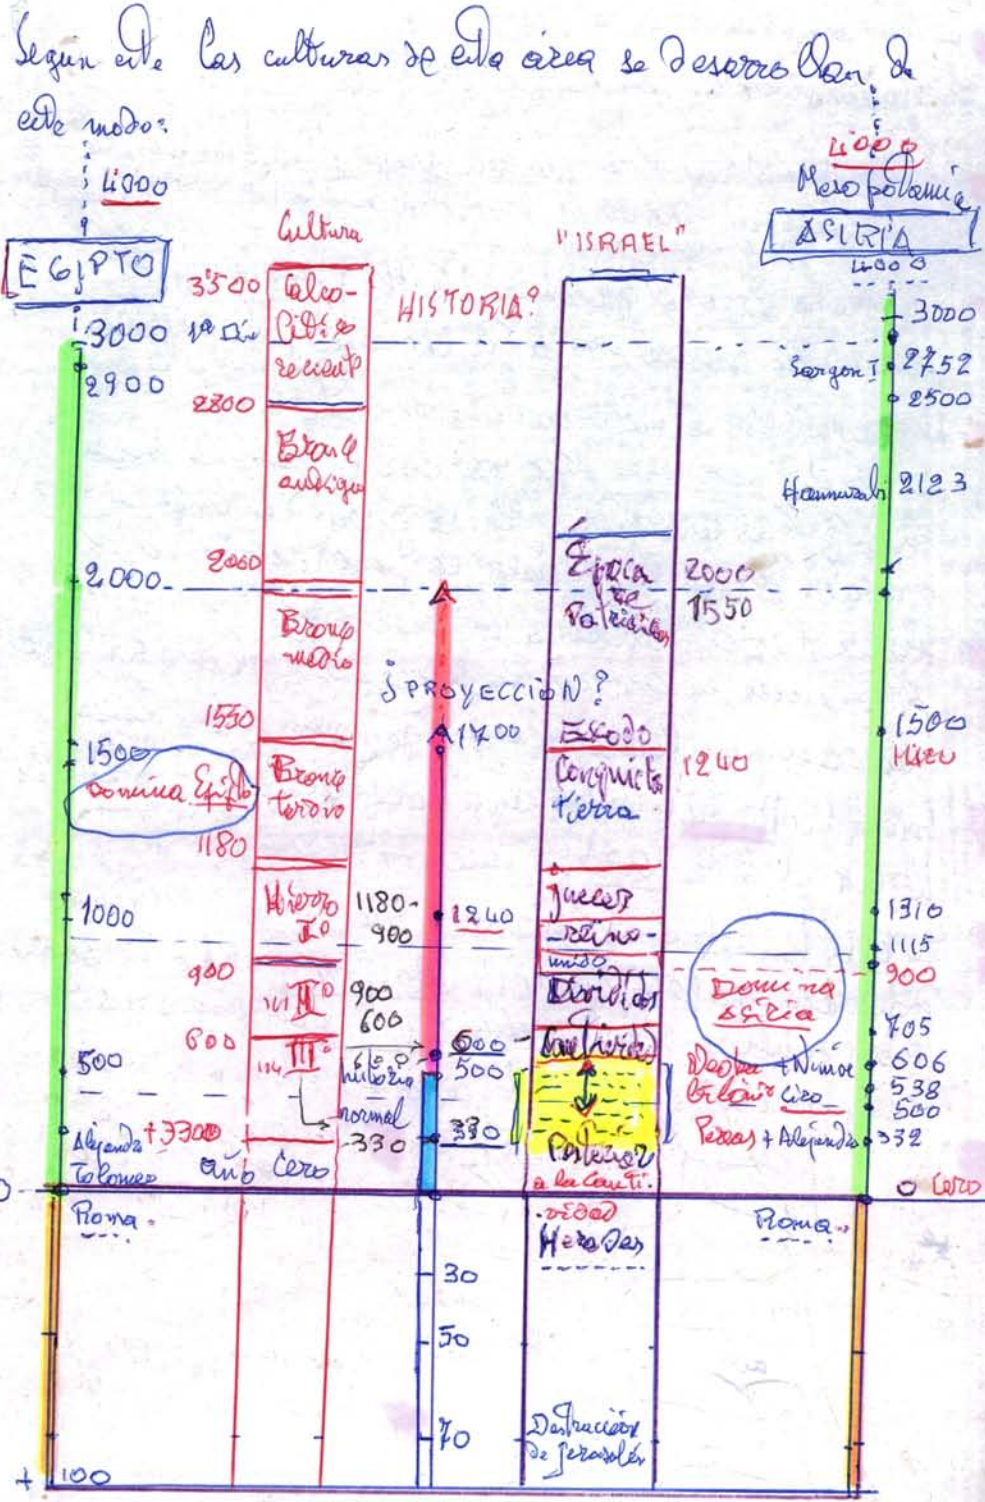 Según este las culturas de esta área se desarrollan de
este modo:
4000
EGIPTO
3000
2900
2000
1500
Domina Egipto
1000
500
Alejandro
Tolomeo
Roma
+ 100
Cultura
3500 Calco-
lítico
reciente
2800
Bronce
antiguo
2000
Bronce
medio
1550
Bronce
1180
Hierro
Iº 1180-
900
900
IIº 900
600
600
IIIº
historia
normal
+3300
330
año cero
HISTORIA?
¿PROYECCIÓN?
1700
1240
600
500
330
30
50
70
"ISRAEL"
Época 2000
de 1550
Patriarcas
Éxodo
Conquista 1240
tierra
Jueces
reino
unido
Dividido
Cautividad
Posterior
a la cauti.
vidad
Herodes
Destrucción
de Jerusalén
4000
Mesopotamia
ASIRIA
4000
3000
Sargon I 2752
2500
Hammurabi 2123
1500
1310
1115
900
Domina
Asiria
705
606
Ciro 538
500
Persas + Alejandro 332
0 Cero
Roma